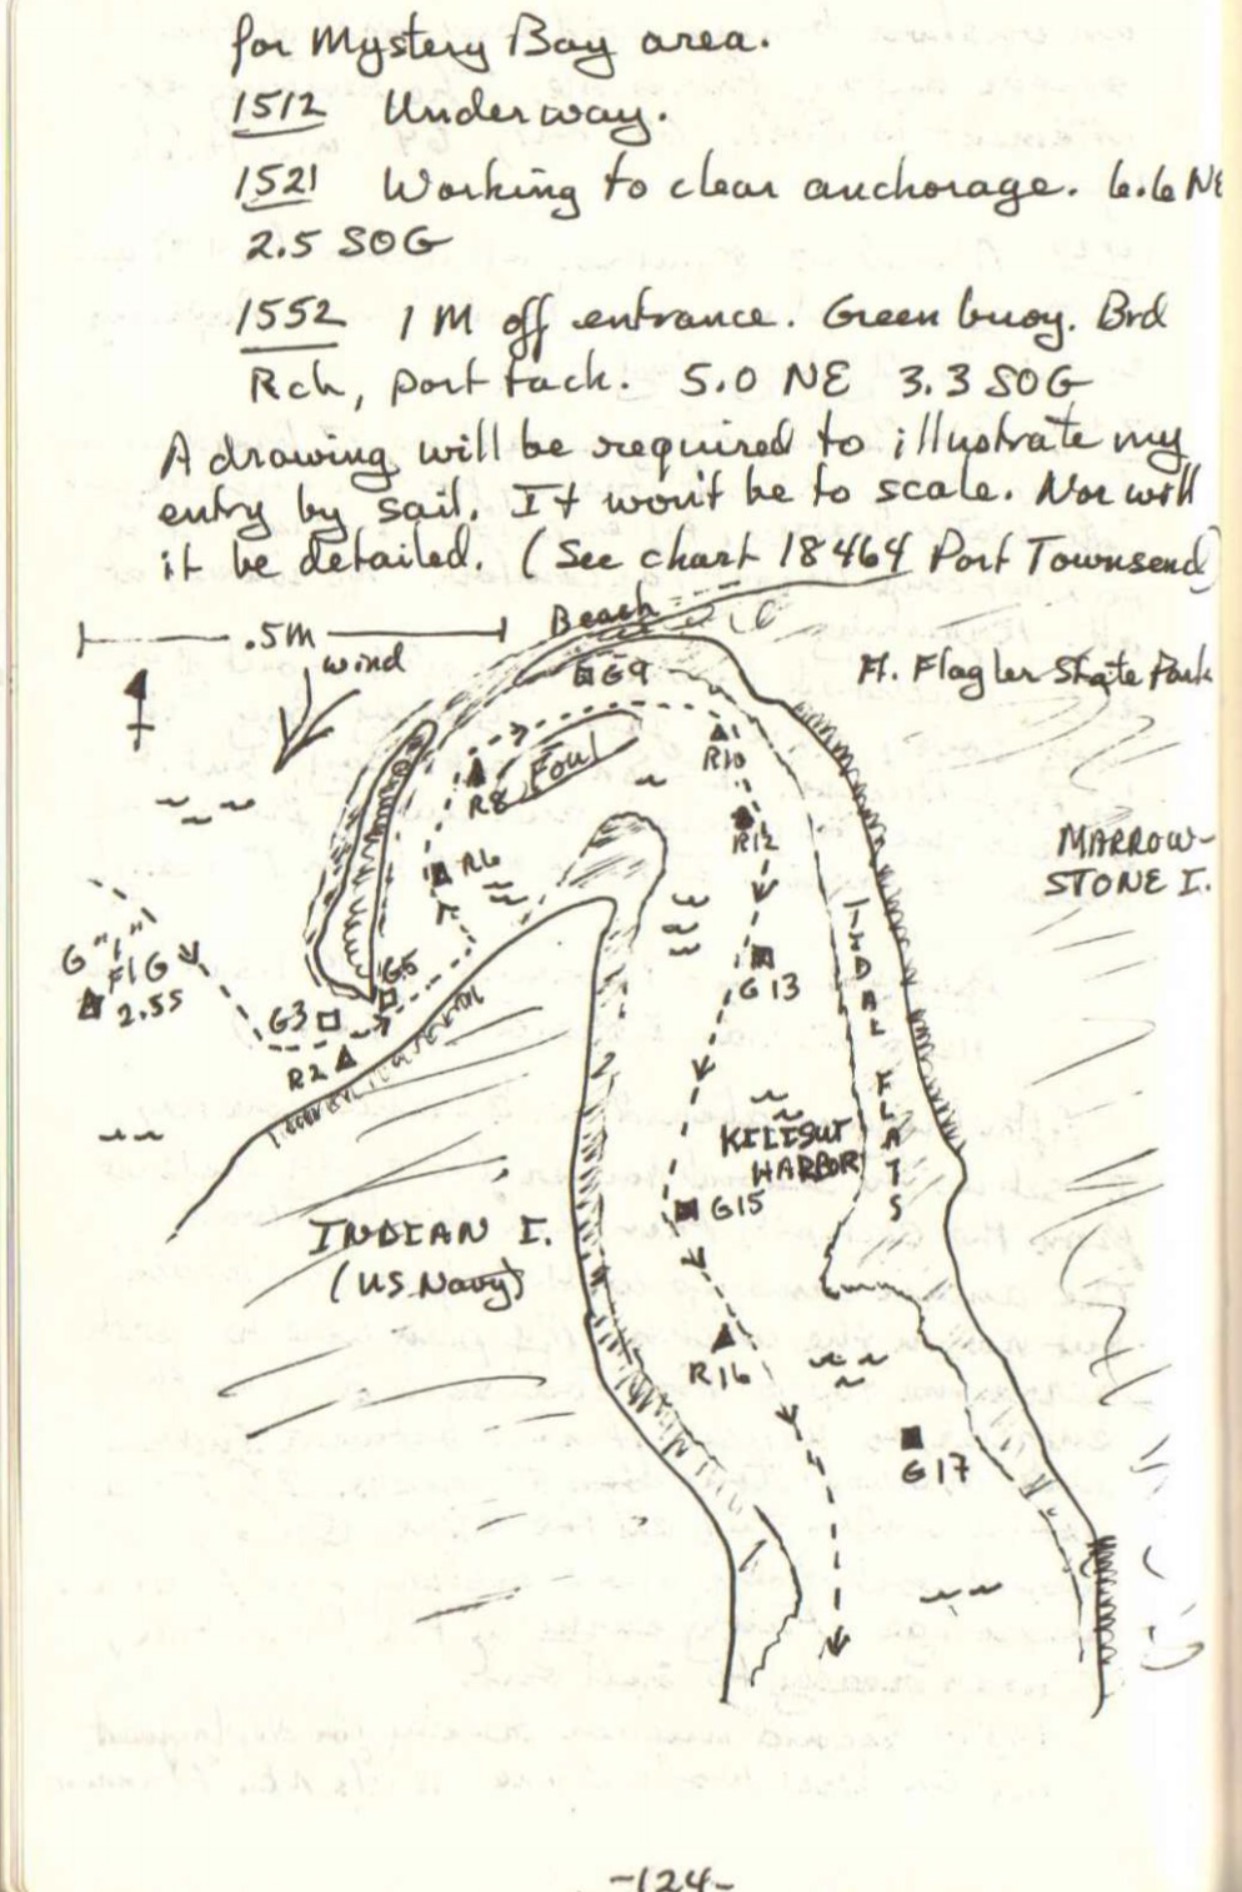 for Mystery Bay area.
1512 Underway.
1521 Working to clear anchorage. 6.6 NE
2.5 SOG
1552 1 M off entrance. Green buoy. Brd
Rch, port tack. 5.0 NE 3.3 SOG
A drawing will be required to illustrate my
entry by sail. It won't be to scale. Nor will
it be detailed. (See chart 18464 Port Townsend)
Beach
.5M
wind
G9
Ft. Flagler State Park
R10
Foul
R8
R12
MARROW-
STONE I.
R6
G "1"
Fl G
2.5S
G5
G3
R2
G13
TIDAL FLATS
KILISUT
HARBOR
G15
INDIAN I.
(US Navy)
R16
G17
-124-